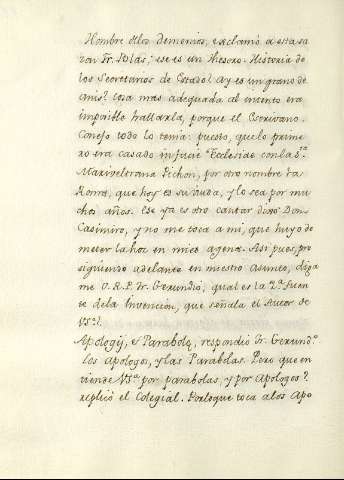 Hombre de los Demonios, exclamó a esta sa
zon Fr. Blas; ese es un Thesoro. Historia de
los Secretarios de Estado! Ay es un grano de
anis? Cosa mas adequada al intento era
imposible hallarla, porque el Escrivano
Conejo todo lo tenia: puesto, que lo prime
ro era casado in facie Ecclesiae con la S.ª
Pichon, por otro nombre la
Roma, que hoy es su viuda, y lo sea por mu
chos años. Ese ya es otro cantar dixo Don
Casimiro, y no me toca a mi, que huyo de
meter la hoz en mies agena. Asi pues, pro
siguiendo adelante en nuestro Asunto, diga
me V. R. P. Fr. Gerundio, qual es la 2.ª fuen
te de la Invención, que señala el Autor de
Vs.ª?
Apologi, et Parabolæ, respondió Fr. Gerund.º
los Apologos, y las Parabolas. Pero que en
tiende Vs.ª por parabolas, y por Apologos?
replicó el Colegial. Por lo que toca a los Apo